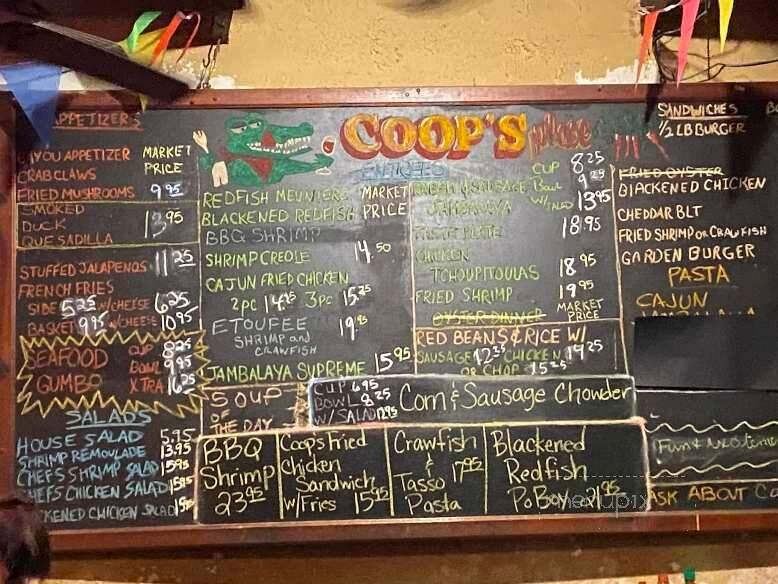 APPETIZERS
APPETIZER MARKET
CRAB CLAWS PRICE
FRIED MUSHROOMS 9.95
SMOKED
DUCK 13.95
QUESADILLA
STUFFED JALAPENOS 11.25
FRENCH FRIES
SIDE 5.25 W/CHEESE 6.25
BASKET 9.95 W/CHEESE 10.95
SEAFOOD CUP 8.25
GUMBO BOWL 9.95
XTRA 16.25
SALADS
HOUSE SALAD 5.95
SHRIMP REMOULADE 13.95
CHEFS SHRIMP SALAD 15.95
CHEFS CHICKEN SALAD
CHICKEN SALAD
COOP'S place
ENTREES
REDFISH MEUNIERE MARKET
BLACKENED REDFISH PRICE
BBQ SHRIMP
SHRIMP CREOLE 14.50
CAJUN FRIED CHICKEN
2pc 3pc
ETOUFEE 19.95
SHRIMP and
CRAWFISH
JAMBALAYA SUPREME 15.95
CUP 8.25
& SAUSAGE Bowl 9.25
JAMBALAYA W/ 13.95
PLATE 18.95
CHICKEN
TCHOUPITOULAS 18.95
FRIED SHRIMP 19.95
OYSTER DINNER MARKET PRICE
RED BEANS & RICE W/
SAUSAGE CHICKEN 19.25
OR CHOP
SANDWICHES
1/2 LB BURGER
FRIED OYSTER
BLACKENED CHICKEN
CHEDDAR BLT
FRIED SHRIMP OR CRAWFISH
GARDEN BURGER
PASTA
CAJUN
SOUP
OF
THE DAY
CUP 6.95
BOWL 8.25
W/SALAD 12.95
Corn & Sausage Chowder
BBQ
Shrimp
23.95
Coop's Fried
Chicken
Sandwich
w/Fries 15.95
Crawfish
&
Tasso 17.95
Pasta
Blackened
Redfish
Po Boy 21.95
menupix
ASK ABOUT